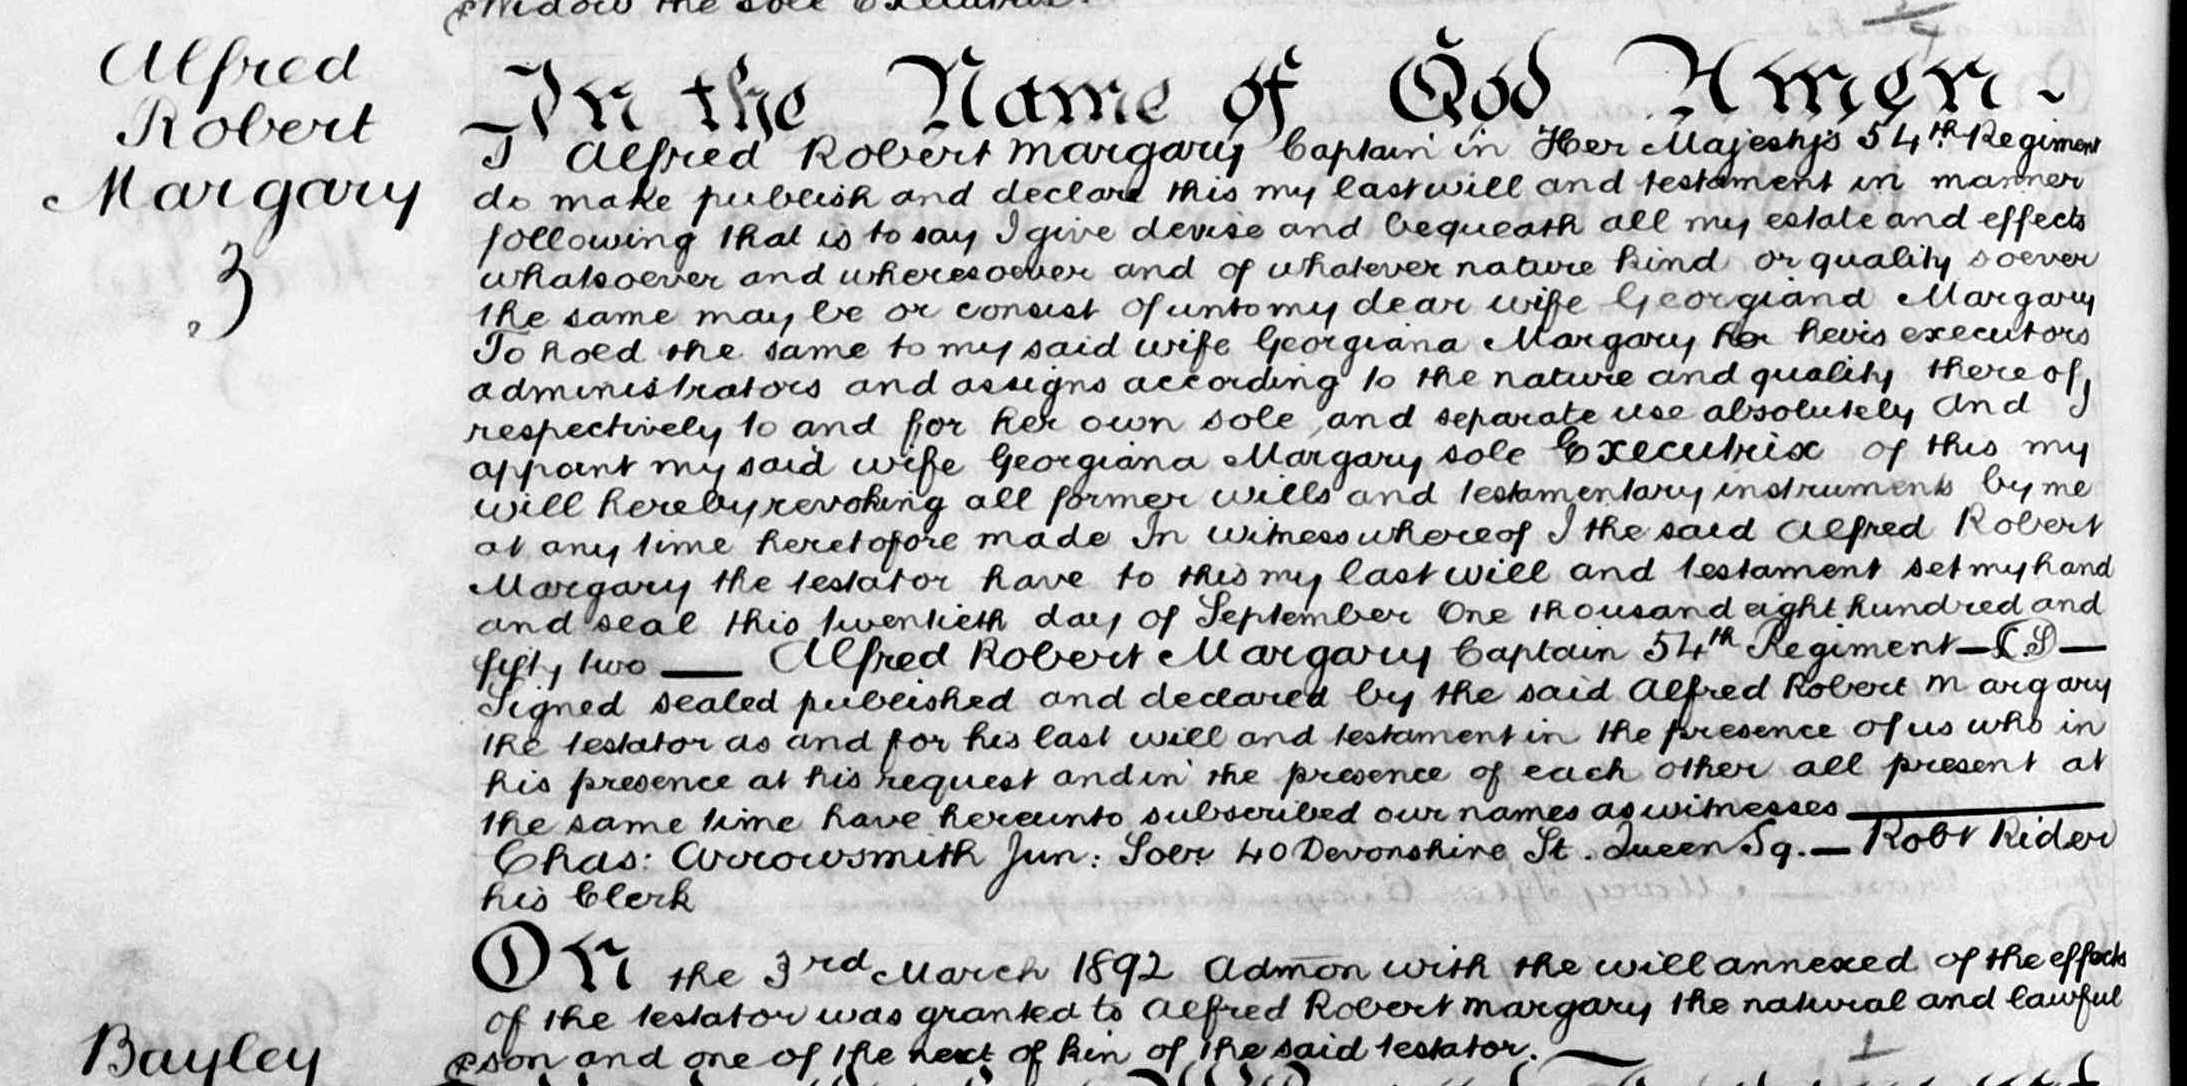 Widow the sole Executrix.
Alfred
Robert
Margary
3
In the Name of God Amen.
I Alfred Robert Margary Captain in Her Majesty's 54th Regiment
do make publish and declare this my last will and testament in manner
following that is to say I give devise and bequeath all my estate and effects
whatsoever and wheresoever and of whatever nature kind or quality soever
the same may be or consist of unto my dear wife Georgiana Margary
To hold the same to my said wife Georgiana Margary her heirs executors
administrators and assigns according to the nature and quality thereof
respectively to and for her own sole and separate use absolutely And I
appoint my said wife Georgiana Margary sole Executrix of this my
will hereby revoking all former wills and testamentary instruments by me
at any time heretofore made In witness whereof I the said Alfred Robert
Margary the testator have to this my last will and testament set my hand
and seal this twentieth day of September One thousand eight hundred and
fifty two — Alfred Robert Margary Captain 54th Regiment — LS —
Signed sealed published and declared by the said Alfred Robert Margary
the testator as and for his last will and testament in the presence of us who in
his presence at his request and in the presence of each other all present at
the same time have hereunto subscribed our names as witnesses —
Chas: Arrowsmith Jun: Solr 40 Devonshire St. Queen Sq. — Robt Rider
his Clerk
On the 3rd March 1892 Admon with the will annexed of the effects
of the testator was granted to Alfred Robert Margary the natural and lawful
son and one of the next of kin of the said testator.
Bayley